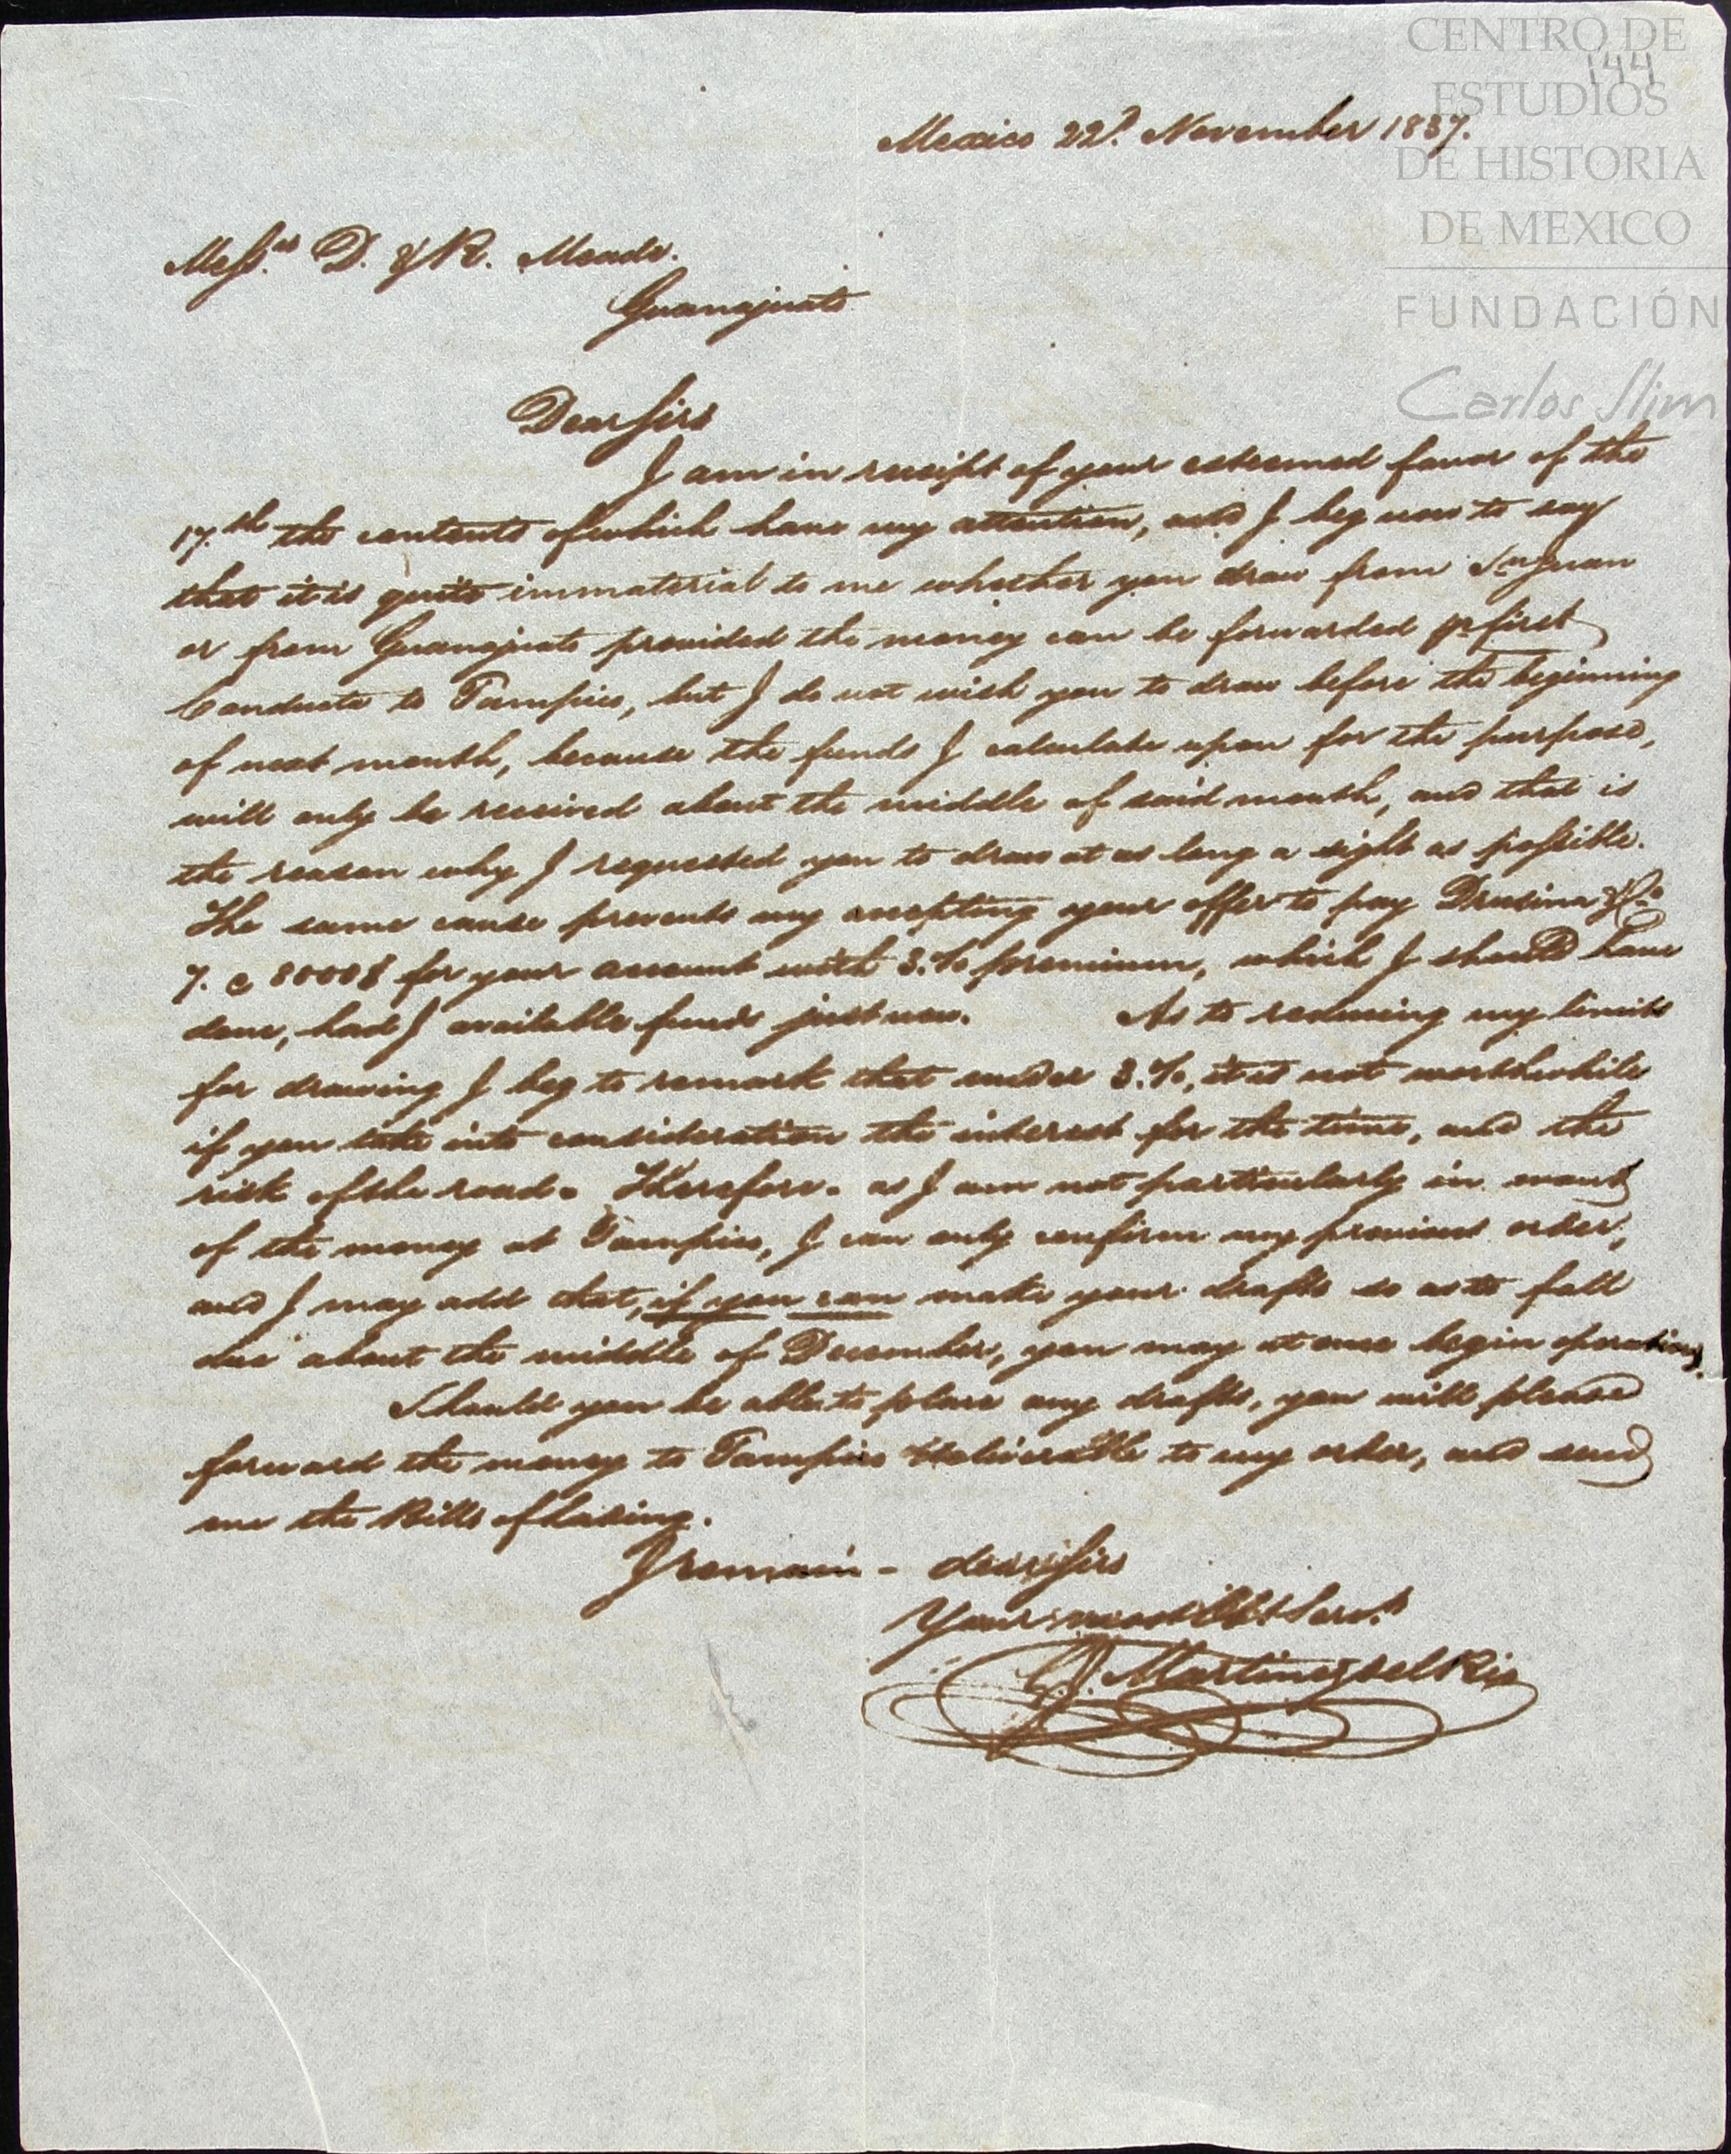 CENTRO DE
144
ESTUDIOS
DE HISTORIA
DE MEXICO
FUNDACIÓN
Carlos Slim
Mexico 22d. November 1837.
Messrs. D. & R. Meade.
Guanajuato
Dear Sirs
I am in receipt of your esteemed favor of the
17.th the contents of which have my attention, and I beg now to say
that it is quite immaterial to me whether you draw from Sn Juan
or from Guanajuato provided the money can be forwarded pr first
Conducta to Tampico, but I do not wish you to draw before the beginning
of next month, because the funds I calculate upon for the purpose,
will only be received about the middle of said month, and that is
the reason why I requested you to draw at as long a sight as possible.
The same cause prevents my accepting your offer to pay Drusina & Co
7. a 8000$ for your account with 3.% premium, which I should have
done, had I available funds just now. As to reducing my limits
for drawing I beg to remark that under 3.%, it is not worth while
if you take into consideration the interest for the time, and the
risk of the road. Therefore. as I am not particularly in want
of the money at Tampico, I can only confirm my previous order,
and I may add that, if you can make your drafts so as to fall
due about the middle of December, you may at once begin operating.
Should you be able to place any drafts, you will please
forward the money to Tampico deliverable to my order, and send
me the Bills of lading.
I remain - dear Sirs
Your most Ob.t Serv.t
J. Martinez del Rio